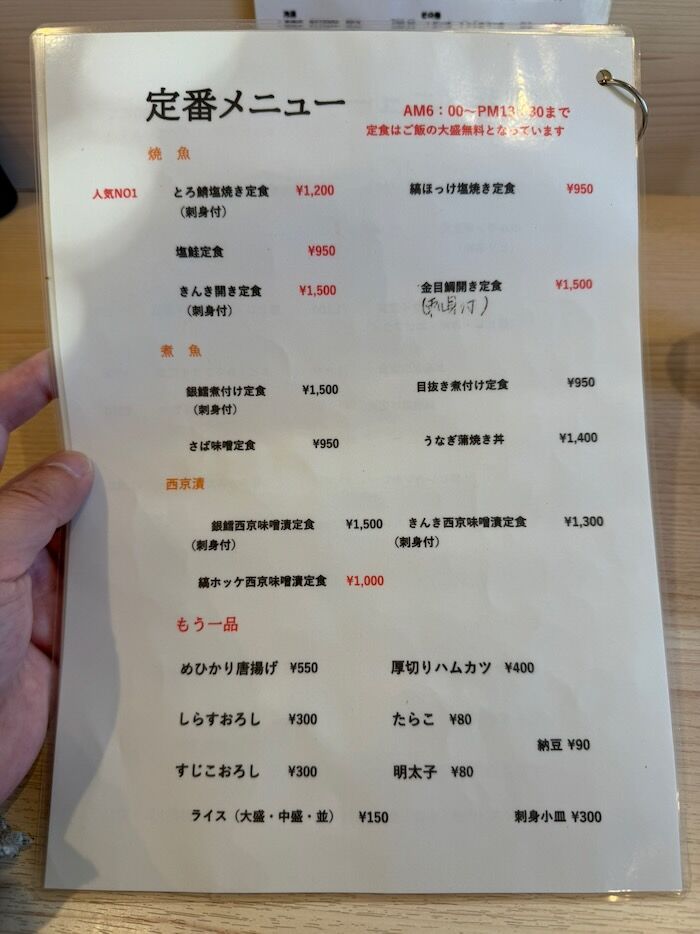 定番メニュー
AM6：00～PM13：30まで
定食はご飯の大盛無料となっています
焼 魚
人気NO1 とろ鯖塩焼き定食 ¥1,200 縞ほっけ塩焼き定食 ¥950
（刺身付）
塩鮭定食 ¥950
きんき開き定食 ¥1,500 金目鯛開き定食 ¥1,500
（刺身付） （刺身付）
煮 魚
銀鱈煮付け定食 ¥1,500 目抜き煮付け定食 ¥950
（刺身付）
さば味噌定食 ¥950 うなぎ蒲焼き丼 ¥1,400
西京漬
銀鱈西京味噌漬定食 ¥1,500 きんき西京味噌漬定食 ¥1,300
（刺身付） （刺身付）
縞ホッケ西京味噌漬定食 ¥1,000
もう一品
めひかり唐揚げ ¥550 厚切りハムカツ ¥400
しらすおろし ¥300 たらこ ¥80
納豆 ¥90
すじこおろし ¥300 明太子 ¥80
ライス（大盛・中盛・並） ¥150 刺身小皿 ¥300